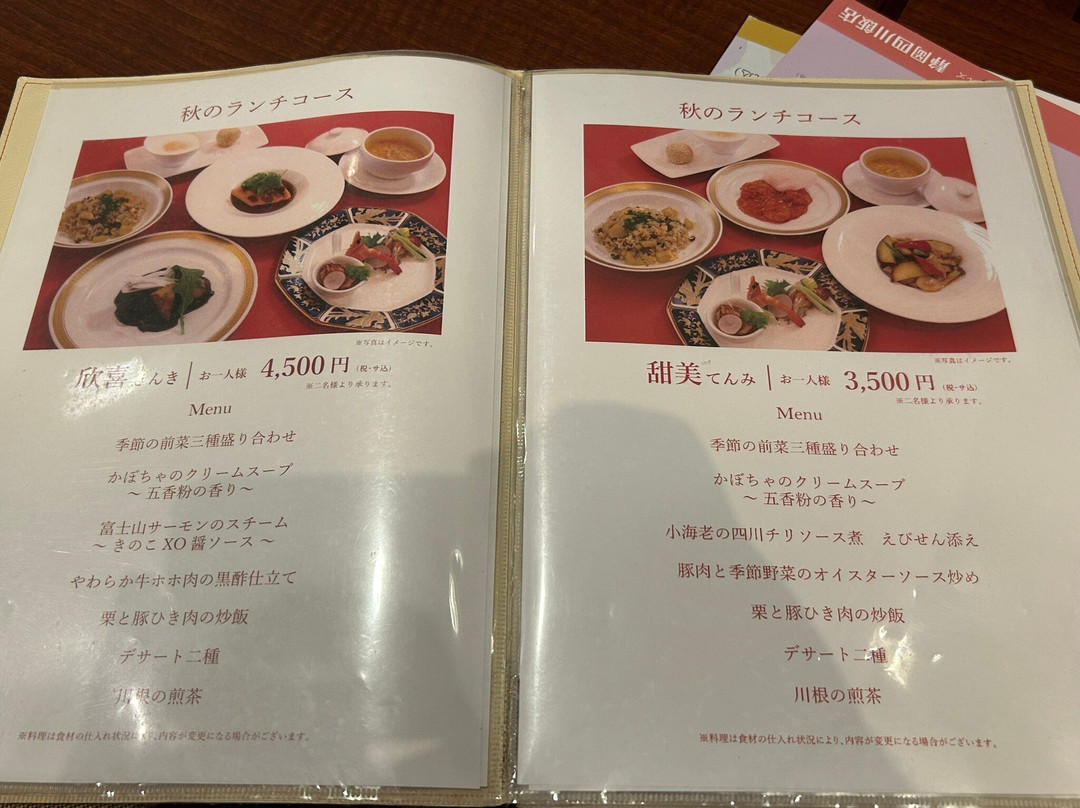 静岡四川飯店
秋のランチコース
※写真はイメージです。
欣喜 きんき お一人様 4,500円 (税・サ込)
※二名様より承ります。
Menu
季節の前菜三種盛り合わせ
かぼちゃのクリームスープ
～ 五香粉の香り～
富士山サーモンのスチーム
～ きのこ XO 醤ソース ～
やわらか牛ホホ肉の黒酢仕立て
栗と豚ひき肉の炒飯
デザート二種
川根の煎茶
※料理は食材の仕入れ状況により、内容が変更になる場合がございます。
秋のランチコース
※写真はイメージです。
甜美 てんみ お一人様 3,500円 (税・サ込)
※二名様より承ります。
Menu
季節の前菜三種盛り合わせ
かぼちゃのクリームスープ
～ 五香粉の香り～
小海老の四川チリソース煮　えびせん添え
豚肉と季節野菜のオイスターソース炒め
栗と豚ひき肉の炒飯
デザート二種
川根の煎茶
※料理は食材の仕入れ状況により、内容が変更になる場合がございます。